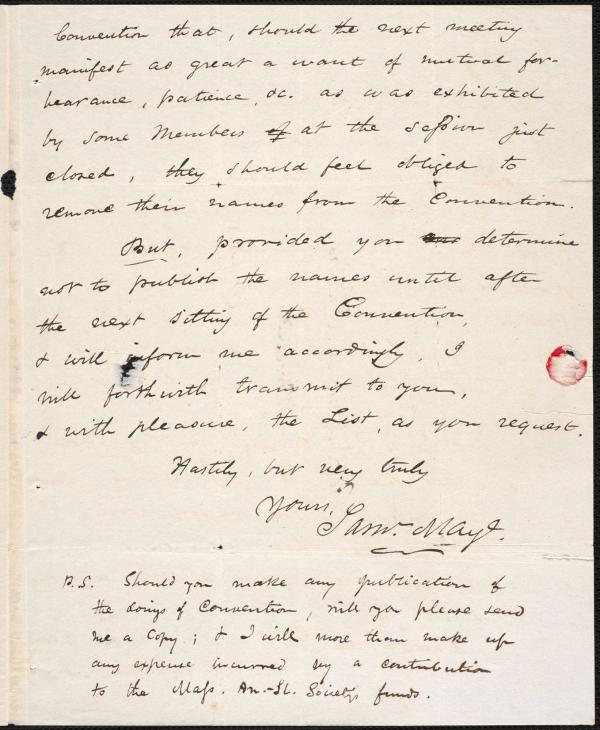 Convention that, should the next meeting
manifest as great a want of mutual for-
bearance, patience, &c. as was exhibited
by some Members of at the session just
closed, they should feel obliged to
remove their names from the Convention.
But, provided you determine
not to publish the names until after
the next sitting of the Convention,
& will inform me accordingly, I
will forthwith transmit to you,
& with pleasure, the List, as you request.
Hastily, but very truly
Yours,
Saml. May Jr.
P.S. Should you make any publication of
the doings of Convention, will you please send
me a Copy; & I will more than make up
any expense incurred by a contribution
to the Mass. An.-Sl. Society's funds.